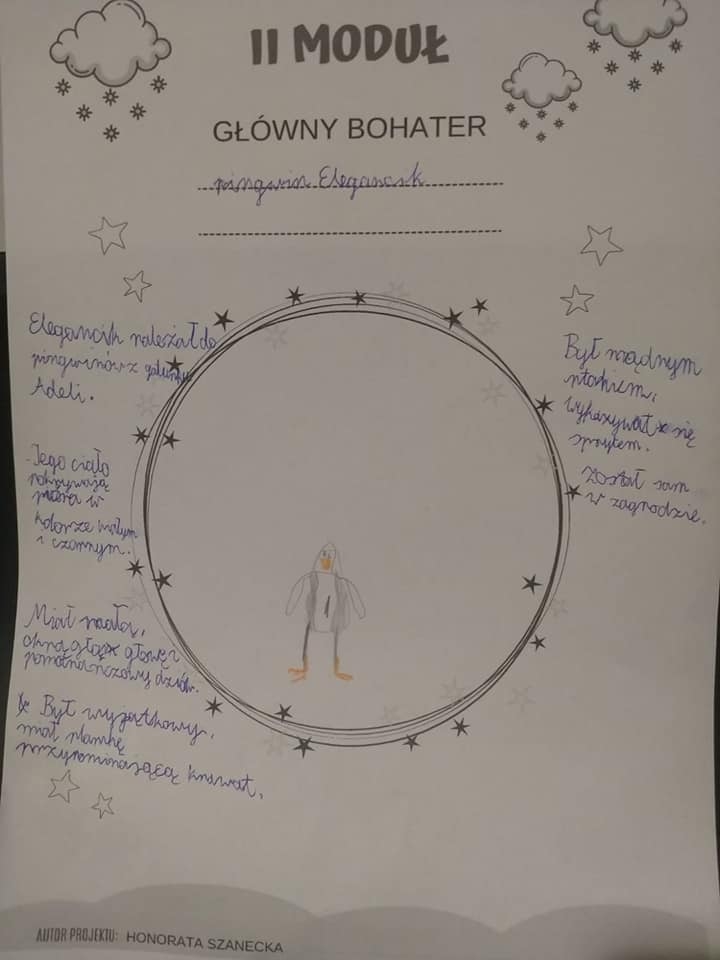 II MODUŁ
GŁÓWNY BOHATER
pingwin Elegancik
Elegancik należał do
pingwinów z gatunku
Adeli.
Jego ciało
pokrywają
pióra w
kolorze białym
i czarnym.
Miał małą,
okrągłą głowę i
pomarańczowy dziób.
Był wyjątkowy,
miał plamkę
przypominającą krawat.
Był mądrym
ptakiem,
wykazywał się
sprytem.
Został sam
w zagrodzie.
AUTOR PROJEKTU: HONORATA SZANECKA